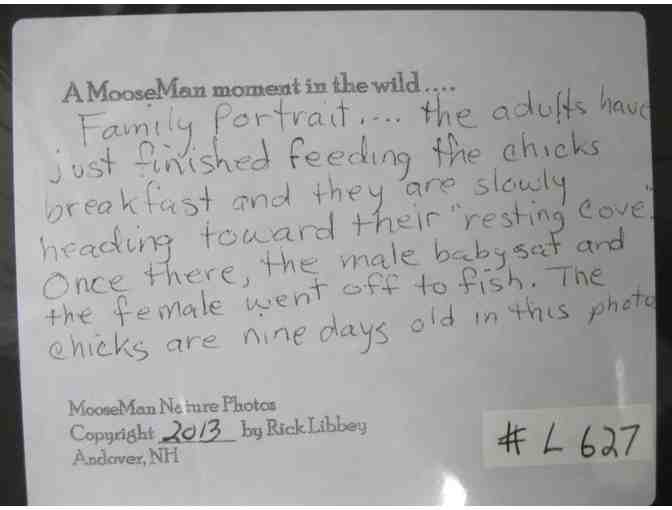 A MooseMan moment in the wild....
Family Portrait.... the adults have
just finished feeding the chicks
breakfast and they are slowly
heading toward their "resting cove."
Once there, the male babysat and
the female went off to fish. The
chicks are nine days old in this photo
MooseMan Nature Photos
Copyright 2013 by Rick Libbey
Andover, NH
# L 627